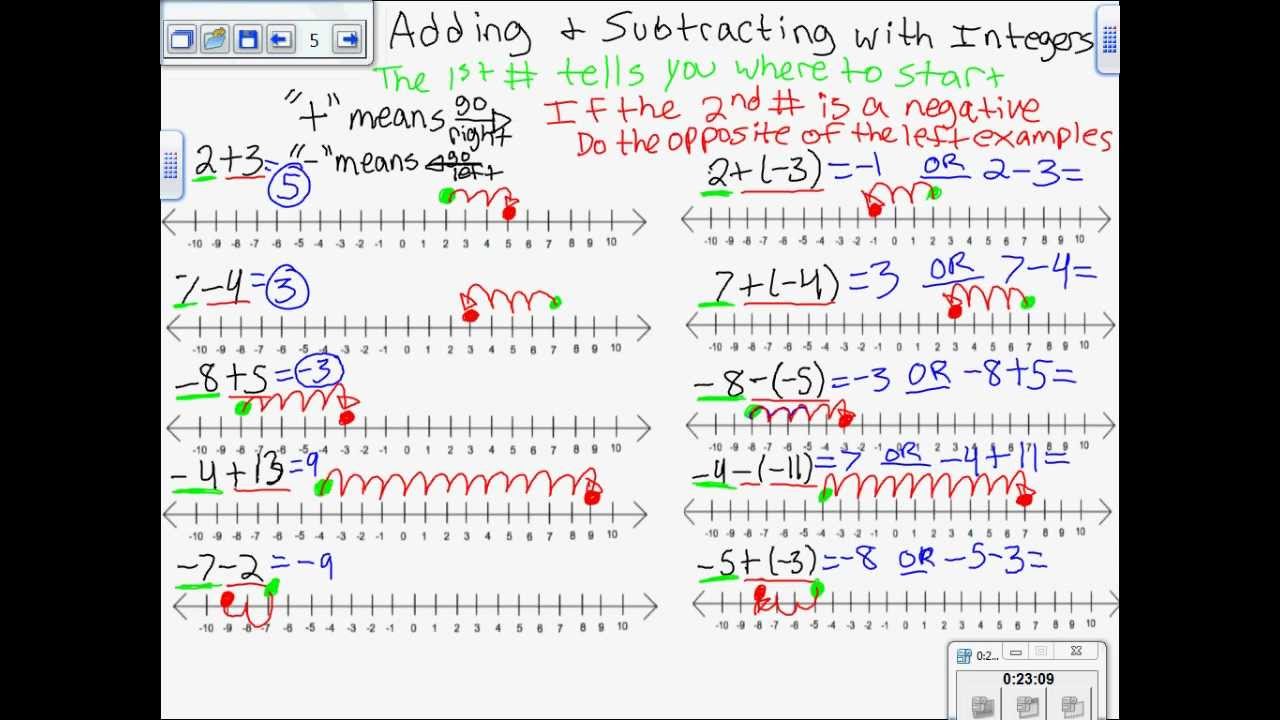 5
Adding + Subtracting with Integers
The 1st # tells you where to start
"+" means go right
If the 2nd # is a negative
Do the opposite of the left examples
"-" means go left
2+3=5
-10 -9 -8 -7 -6 -5 -4 -3 -2 -1 0 1 2 3 4 5 6 7 8 9 10
2+(-3)=-1 OR 2-3=
-10 -9 -8 -7 -6 -5 -4 -3 -2 -1 0 1 2 3 4 5 6 7 8 9 10
7-4=3
-10 -9 -8 -7 -6 -5 -4 -3 -2 -1 0 1 2 3 4 5 6 7 8 9 10
7+(-4)=3 OR 7-4=
-10 -9 -8 -7 -6 -5 -4 -3 -2 -1 0 1 2 3 4 5 6 7 8 9 10
-8+5=-3
-10 -9 -8 -7 -6 -5 -4 -3 -2 -1 0 1 2 3 4 5 6 7 8 9 10
-8-(-5)=-3 OR -8+5=
-10 -9 -8 -7 -6 -5 -4 -3 -2 -1 0 1 2 3 4 5 6 7 8 9 10
-4+13=9
-10 -9 -8 -7 -6 -5 -4 -3 -2 -1 0 1 2 3 4 5 6 7 8 9 10
-4-(-11)=7 OR -4+11=
-10 -9 -8 -7 -6 -5 -4 -3 -2 -1 0 1 2 3 4 5 6 7 8 9 10
-7-2=-9
-10 -9 -8 -7 -6 -5 -4 -3 -2 -1 0 1 2 3 4 5 6 7 8 9 10
-5+(-3)=-8 OR -5-3=
-10 -9 -8 -7 -6 -5 -4 -3 -2 -1 0 1 2 3 4 5 6 7 8 9 10
0:2...
0:23:09